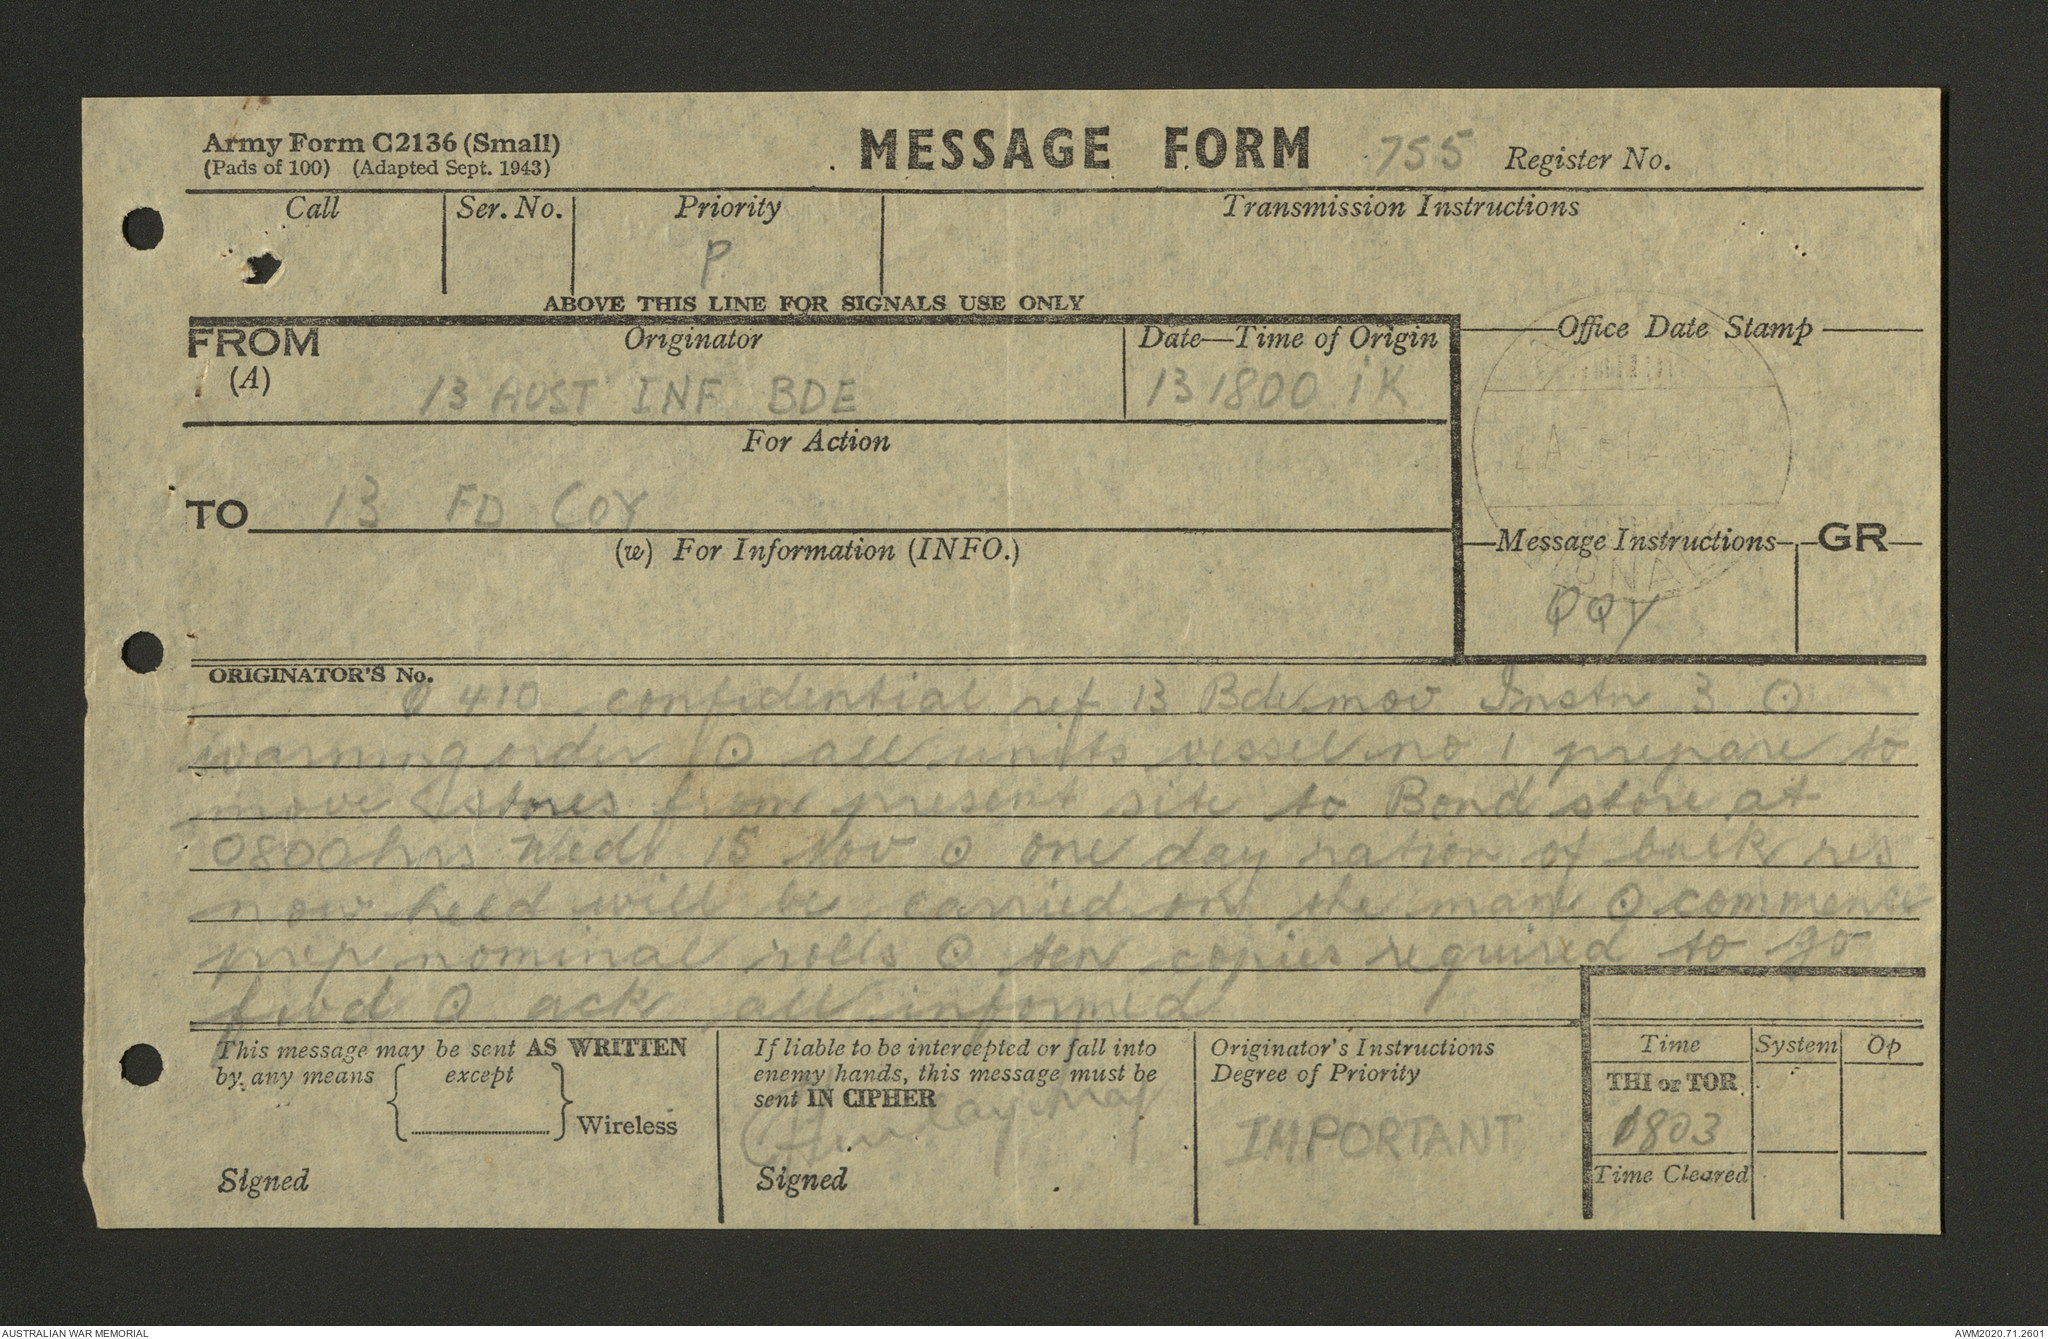 Army Form C2136 (Small)
(Pads of 100) (Adapted Sept. 1943)
MESSAGE FORM 755 Register No.
Call Ser. No. Priority Transmission Instructions
P
ABOVE THIS LINE FOR SIGNALS USE ONLY
FROM Originator Date—Time of Origin Office Date Stamp
(A) 13 AUST INF BDE 131800 iK
For Action
TO 13 FD COY
(w) For Information (INFO.) Message Instructions GR
QQY
SIGNALS
ORIGINATOR'S No.
O 410 confidential ref 13 Bde mov Instn 3 ⊙
warning order ⊙ all units vessel no 1 prepare to
move stores from present site to Bond store at
0800 hrs Wed 15 Nov ⊙ one day ration of bulk res
now held will be carried on the man ⊙ commence
prep nominal rolls ⊙ ten copies required to go
fwd ⊙ ack all informed
This message may be sent AS WRITTEN
by any means except
Wireless
Signed
If liable to be intercepted or fall into
enemy hands, this message must be
sent IN CIPHER
Maj
Signed
Originator's Instructions
Degree of Priority
IMPORTANT
Time System Op
THI or TOR
1803
Time Cleared
AUSTRALIAN WAR MEMORIAL AWM2020.71.2601